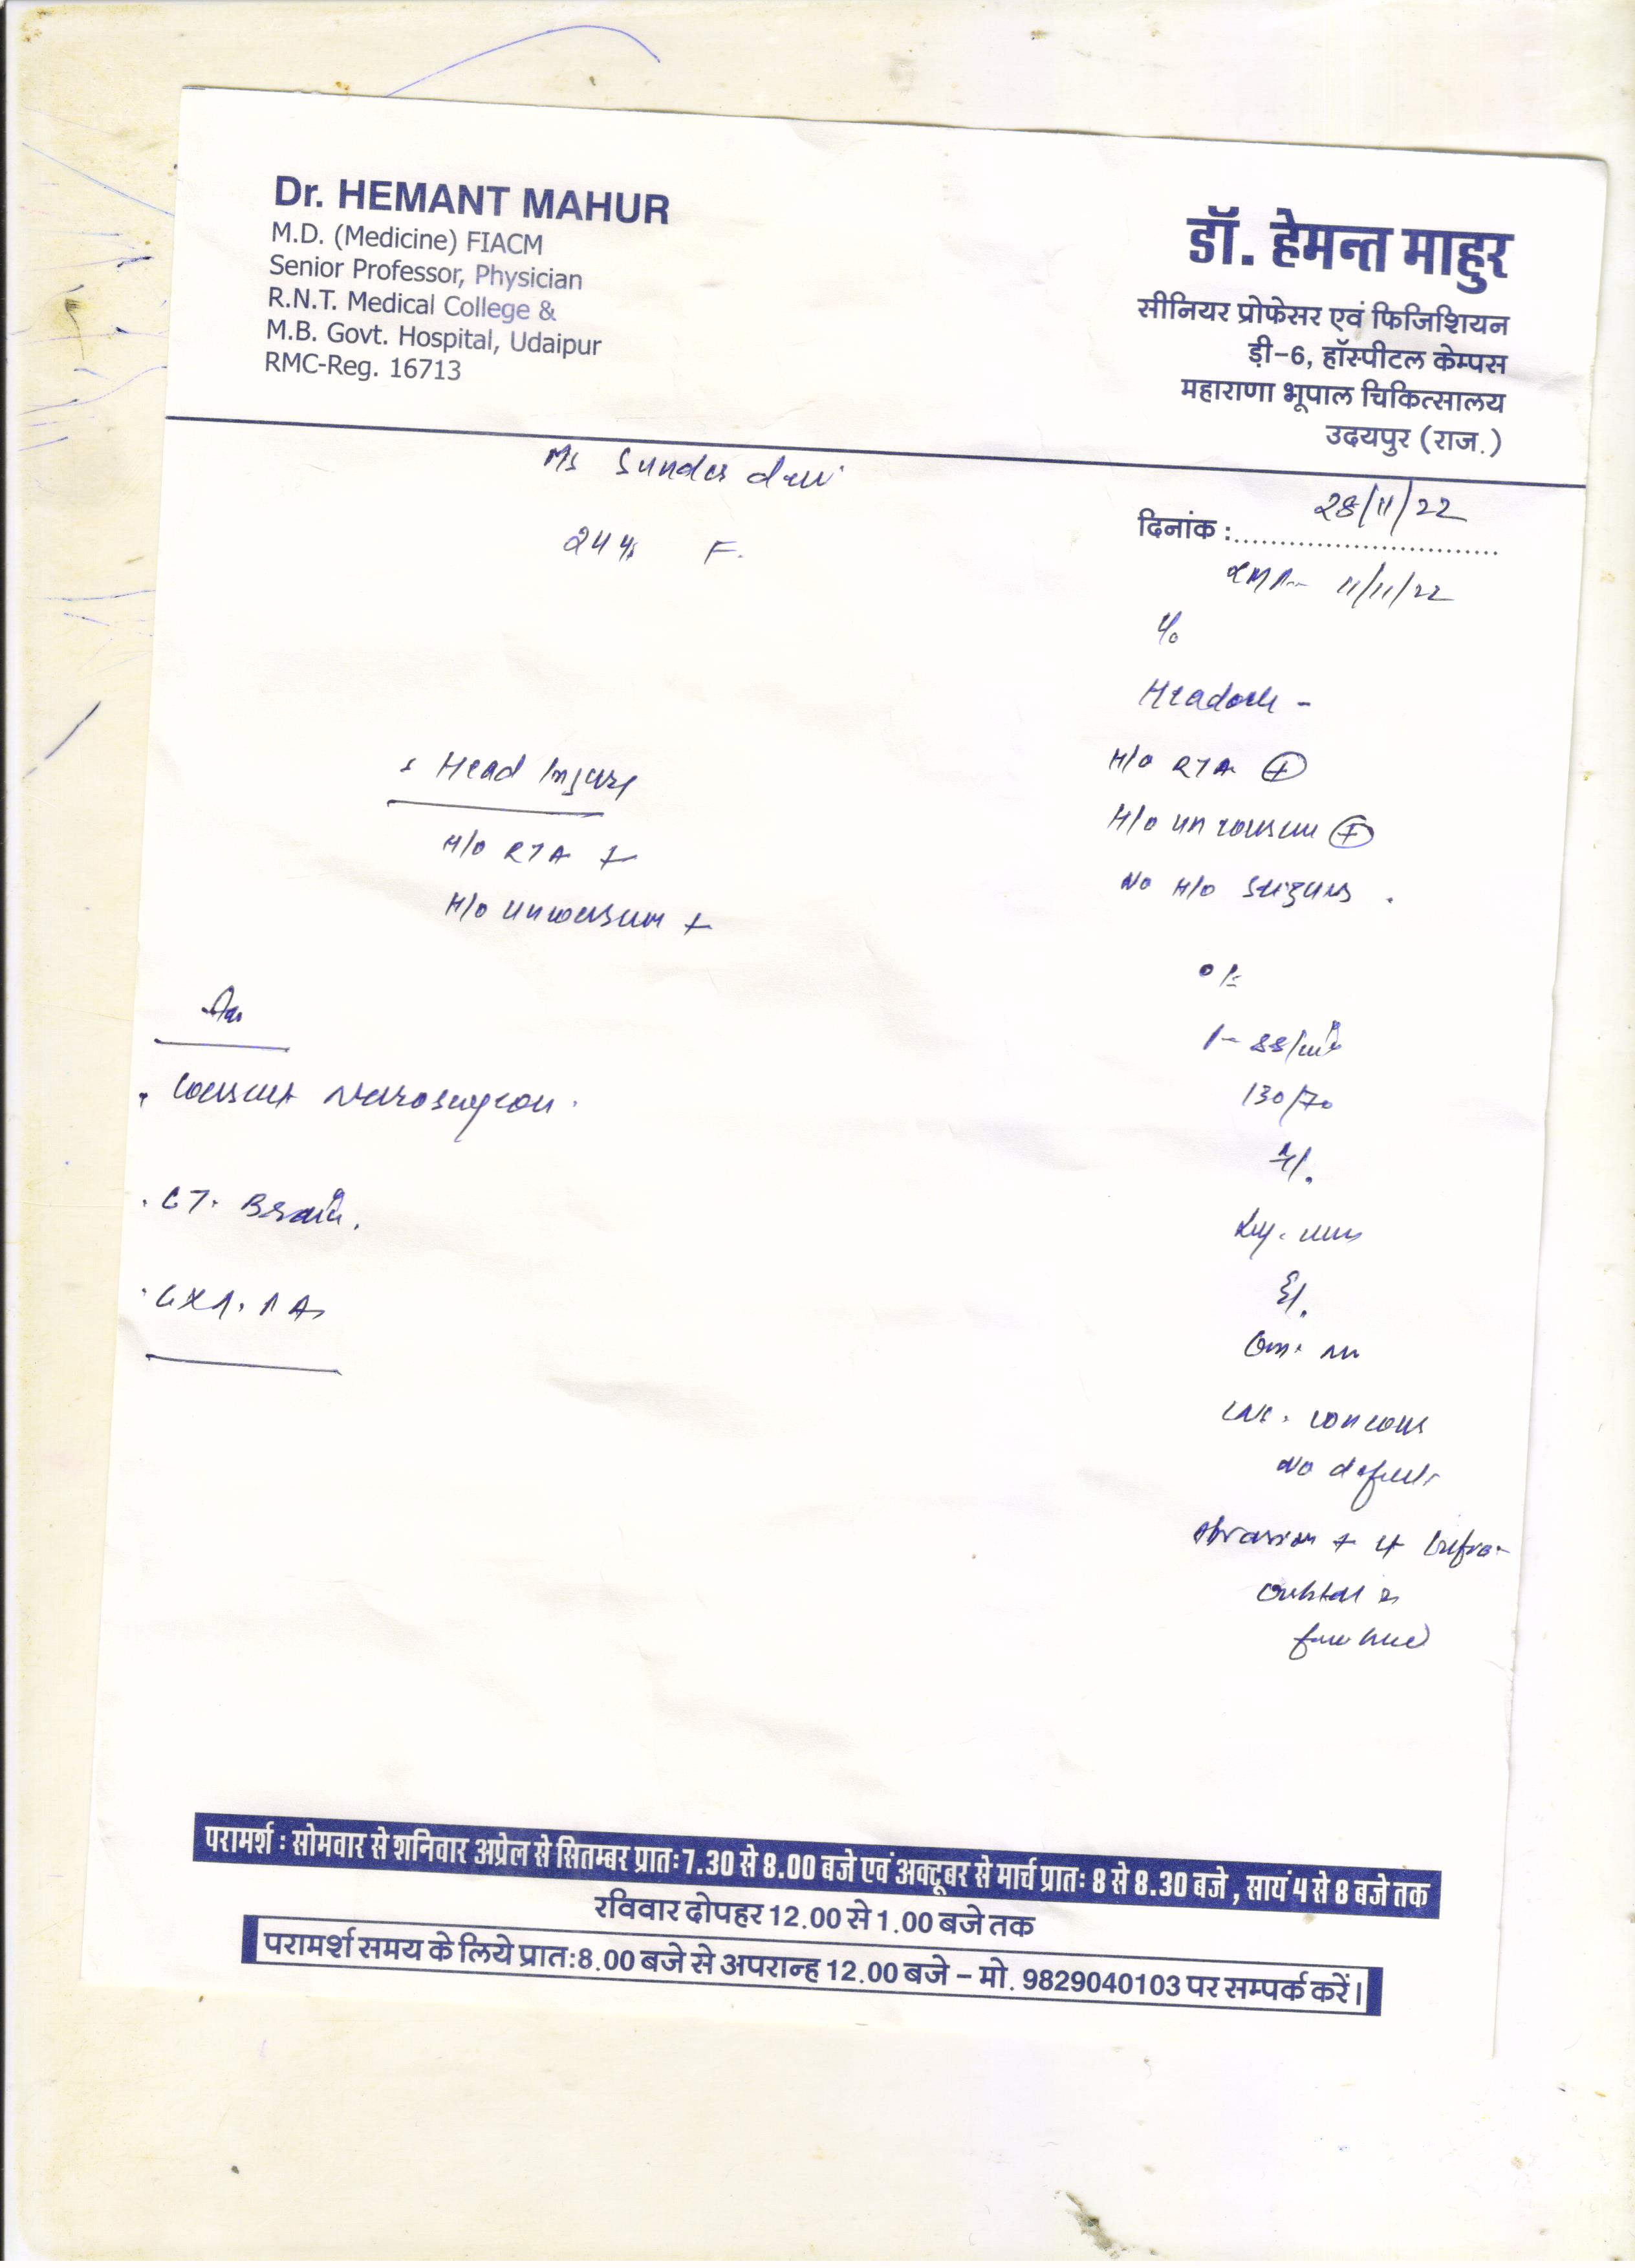 Dr. HEMANT MAHUR
M.D. (Medicine) FIACM
Senior Professor, Physician
R.N.T. Medical College &
M.B. Govt. Hospital, Udaipur
RMC-Reg. 16713
डॉ. हेमन्त माहुर
सीनियर प्रोफेसर एवं फिजिशियन
ड़ी-6, हॉस्पीटल केम्पस
महाराणा भूपाल चिकित्सालय
उदयपुर (राज.)
Ms Sunder devi
24 yrs F.
दिनांक : 28/11/22
LMP 11/11/22
c/o
Headache -
H/o RTA +
H/o unconscious +
No H/o seizures .
Head Injury
H/o RTA +
H/o unconscious +
O/E
P- 88/min
130/70
Adv
. Consult Neurosurgeon .
. CT. Brain .
. CXR. PA
CNS . conscious
No deficits
Abrasion + Lt Infra-
orbital
forehead
परामर्श : सोमवार से शनिवार अप्रेल से सितम्बर प्रातः 7.30 से 8.00 बजे एवं अक्टूबर से मार्च प्रातः 8 से 8.30 बजे , सायं 4 से 8 बजे तक
रविवार दोपहर 12.00 से 1.00 बजे तक
परामर्श समय के लिये प्रात:8.00 बजे से अपरान्ह 12.00 बजे – मो. 9829040103 पर सम्पर्क करें।